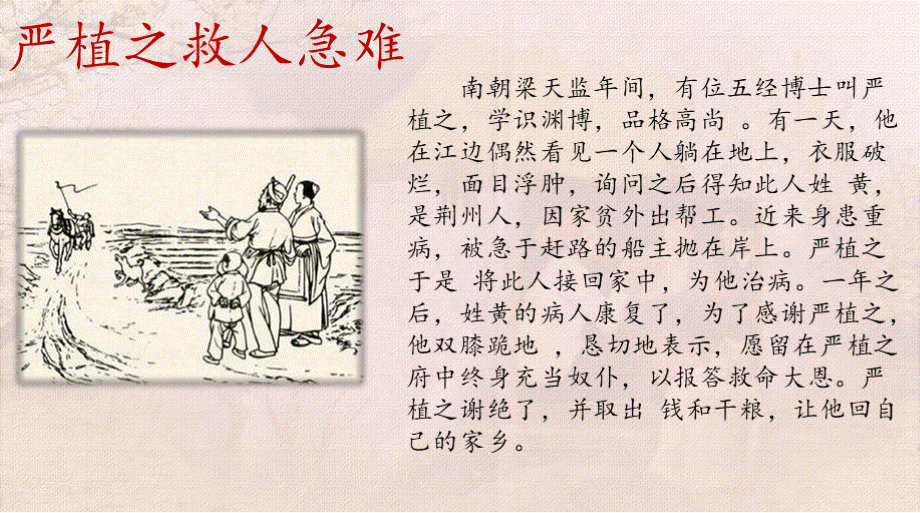 严植之救人急难
南朝梁天监年间，有位五经博士叫严
植之，学识渊博，品格高尚 。有一天，他
在江边偶然看见一个人躺在地上，衣服破
烂，面目浮肿，询问之后得知此人姓 黄，
是荆州人，因家贫外出帮工。近来身患重
病，被急于赶路的船主抛在岸上。严植之
于是 将此人接回家中，为他治病。一年之
后，姓黄的病人康复了，为了感谢严植之，
他双膝跪地 ，恳切地表示，愿留在严植之
府中终身充当奴仆，以报答救命大恩。严
植之谢绝了，并取出 钱和干粮，让他回自
己的家乡。